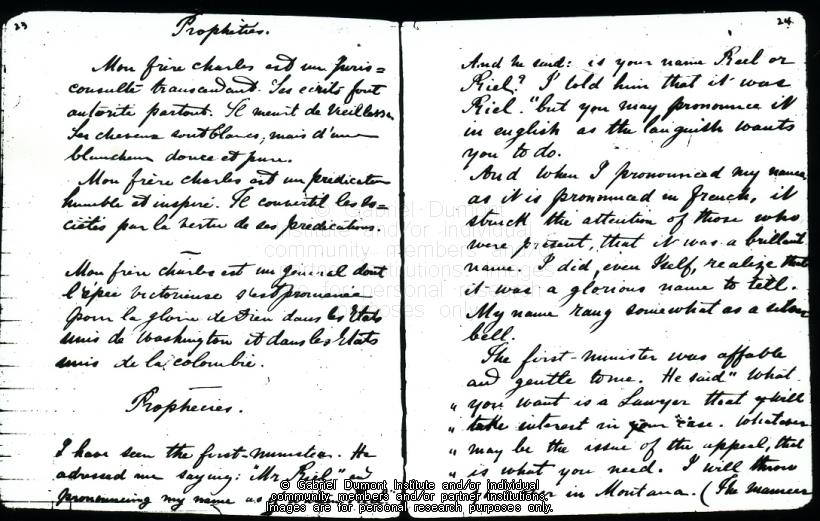 23
Prophéties.
Mon frère charles est un Juris=
consulte transcendant. Ses écrits font
autorité partout. Il meurt de vieillesse.
Ses cheveux sont blancs, mais d'une
blancheur douce et pure.
Mon frère charles est un prédicateur
humble et inspiré. Il convertit les so=
ciétés par la vertu de ses prédications.
Mon frère charles est un général dont
l'épée victorieuse s'est promenée
pour la gloire de Dieu dans les Etats
unis de Washington et dans les Etats
unis de la colombie.
Prophecies.
I have seen the first-minister. He
adressed me saying: "Mr. Riel"
pronouncing my name as
24
And he said: is your name Reel or
Riel? I told him that it was
Riel. "but you may pronounce it
in english as the languish wants
you to do.
And when I pronounced my name,
as it is pronounced in french, it
struck the attention of those who
were present, that it was a brillant
name. I did, even Iself, realize that
it was a glorious name to tell.
My name rang somewhat as a silver
bell.
The first-minister was affable
and gentle to me. He said "What
" you want is a Lawyer that will
" take interest in your case. Whatever
" may be the issue of the appeal, that
" is what you need. I will throw
in Montana. (The manner
© Gabriel Dumont Institute and/or individual
community members and/or partner institutions.
Images are for personal research purposes only.
© Gabriel Dumont
Institute and/or individual
community members and/or
partner institutions. Images
are for personal research
purposes only.